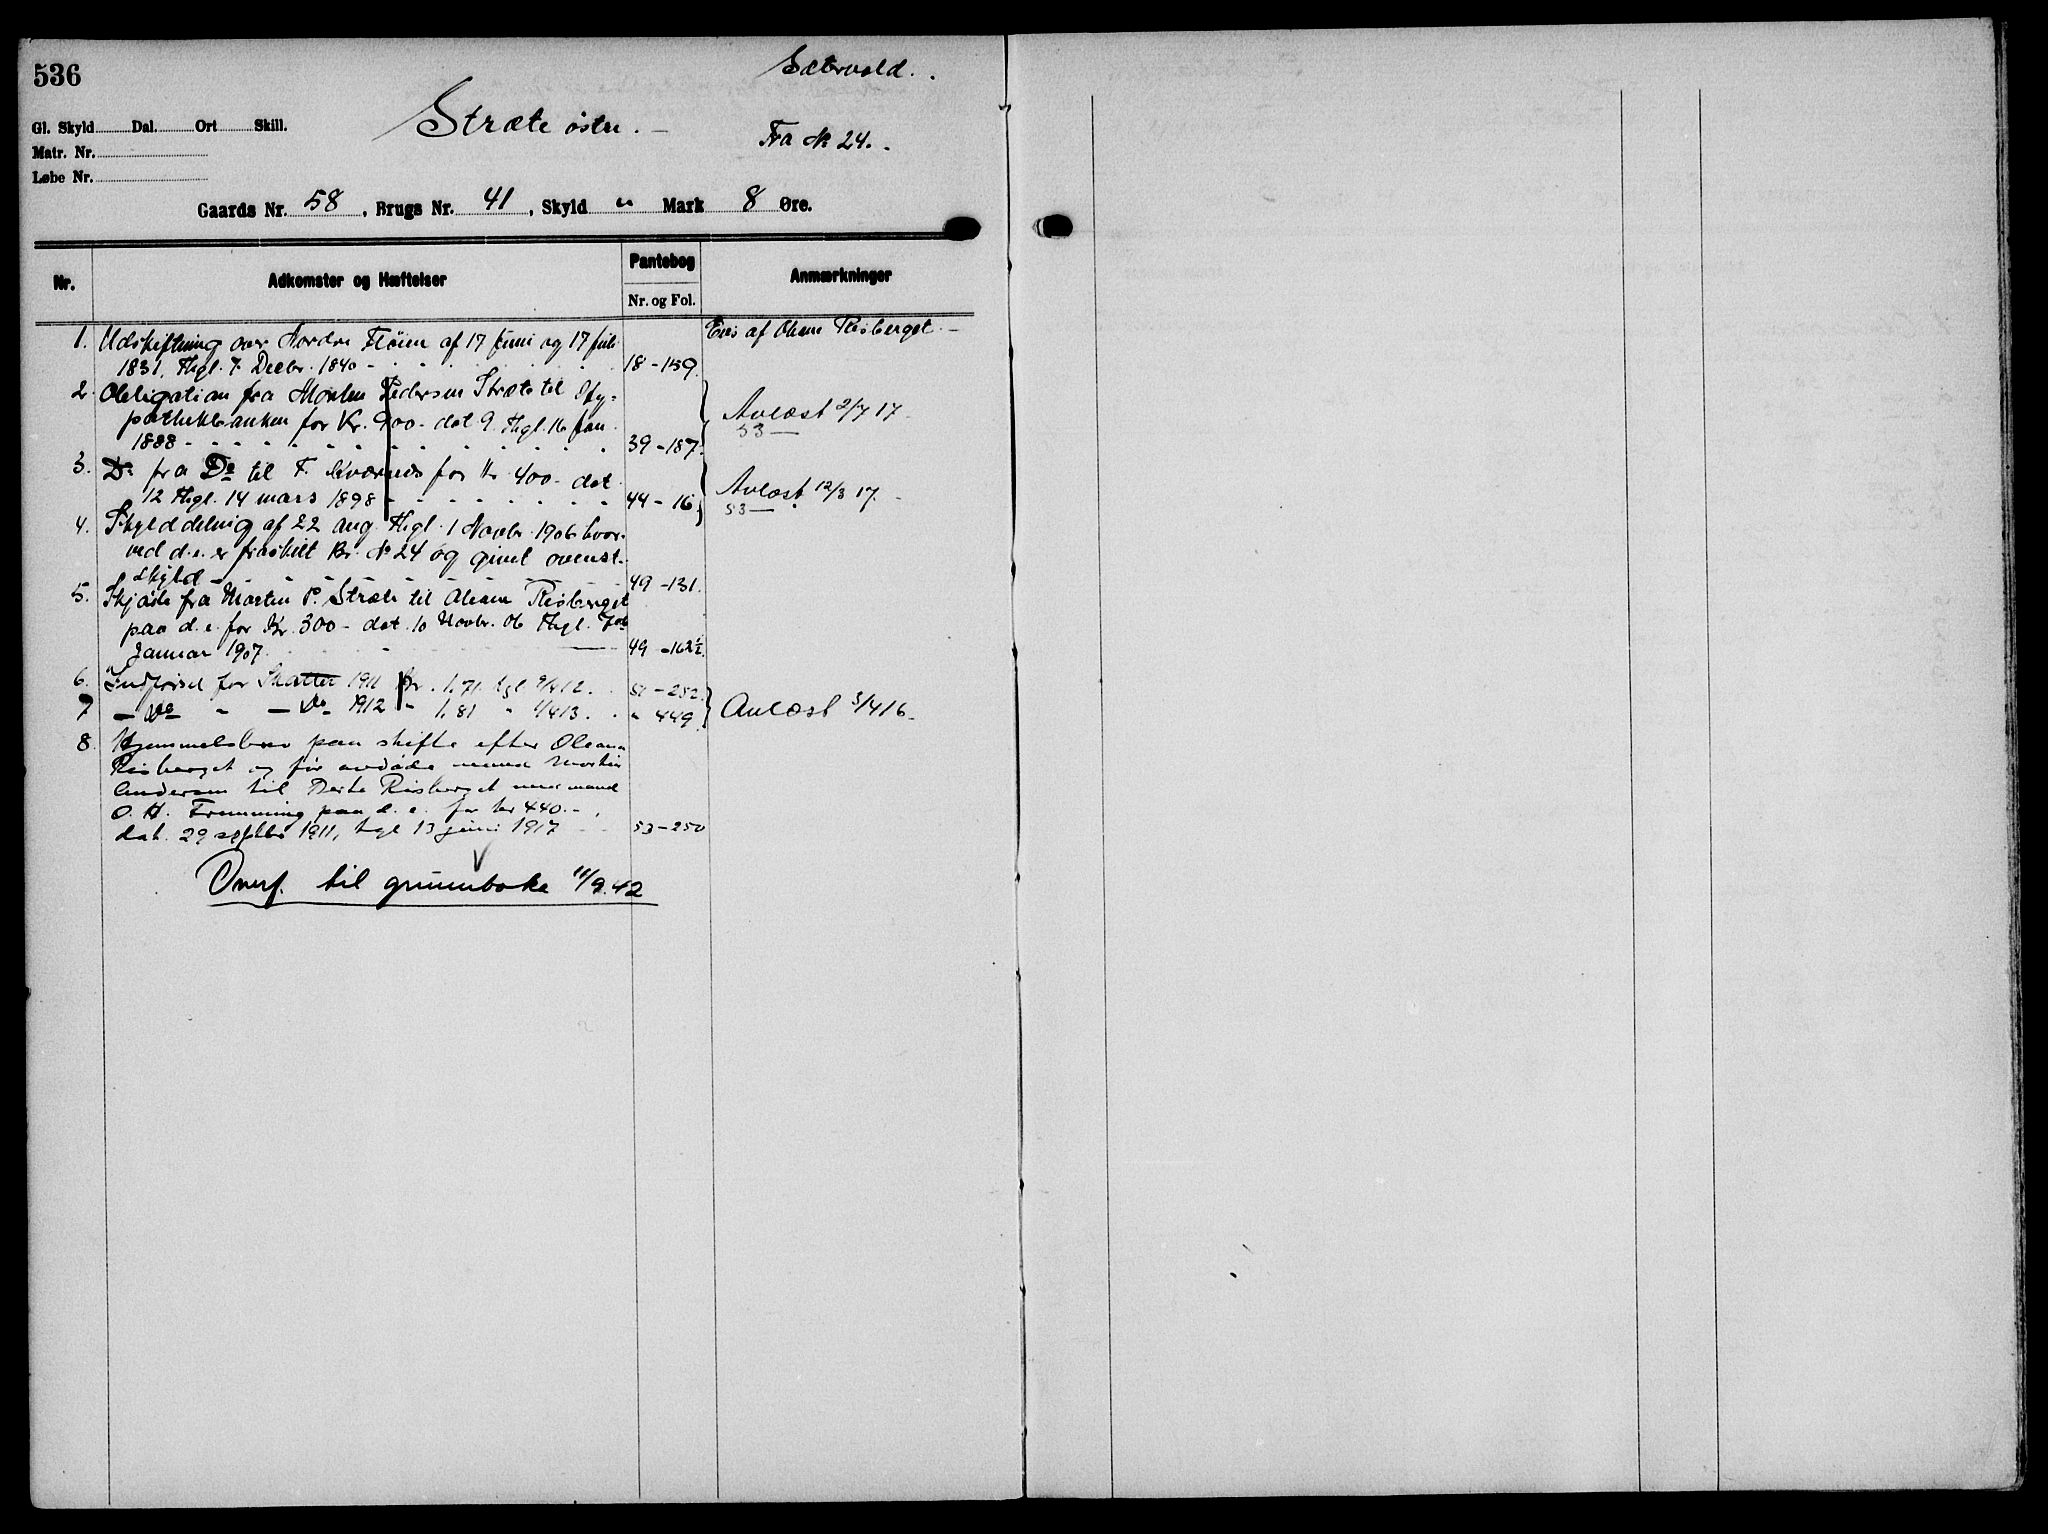 536
Sætervold.
Stræte østre.
Fra № 24.
Gl. Skyld Dal. Ort Skill.
Matr. Nr.
Løbe Nr.
Gaards Nr. 58, Brugs Nr. 41, Skyld " Mark 8 Øre.
Nr. Adkomster og Hæftelser Pantebog Anmærkninger
Nr. og Fol.
Eies af Oleane Risberget.
1. Udskiftning over Nordre Fløien af 17 juni og 17 juli
1831, Thgl. 7 Decbr. 1840 18-159.
2. Obligation fra Morten Pedersen Stræte til Hy-
pothekbanken for Kr. 900 - dat 9. Thgl. 16 jan.
1888 39-187.
Avlæst 2/7 17
53
3. Do fra Do til F. Kværnes for Kr 400 - dat
12 Thgl. 14 mars 1898 44-16
Avlæst 12/3 17.
53
4. Skylddeling af 22 aug. Thgl. 1 Novbr. 1906 hvor-
ved d.e. er fraskilt Br. № 24 og givet ovenst.
Skyld 49-131.
5. Skjøde fra Morten P. Stræte til Oleane Risberget
paa d.e. for Kr. 300 - dat. 10 Novbr. 06 Thgl. 7de
Januar 1907. 49-162½
6. Indførsel for Skatter 1911 Kr. 1,71. tgl 9/4 12. 51-252.
7 - Do - " - Do 1912 " 1,81 " 1/4 13. " 449.
Avlæst 3/4 16
8. Hjemmelsbrev paa skifte efter Oleana
Risberget og før avdøde mand Morten
Andersen til Berte Risberget med mand
O. H. Fremming paa d. e. for kr 440.-,
dat. 29 septbr 1911, tgl 13 juni 1917 53-250
Overf. til grunnboka 11/9.42